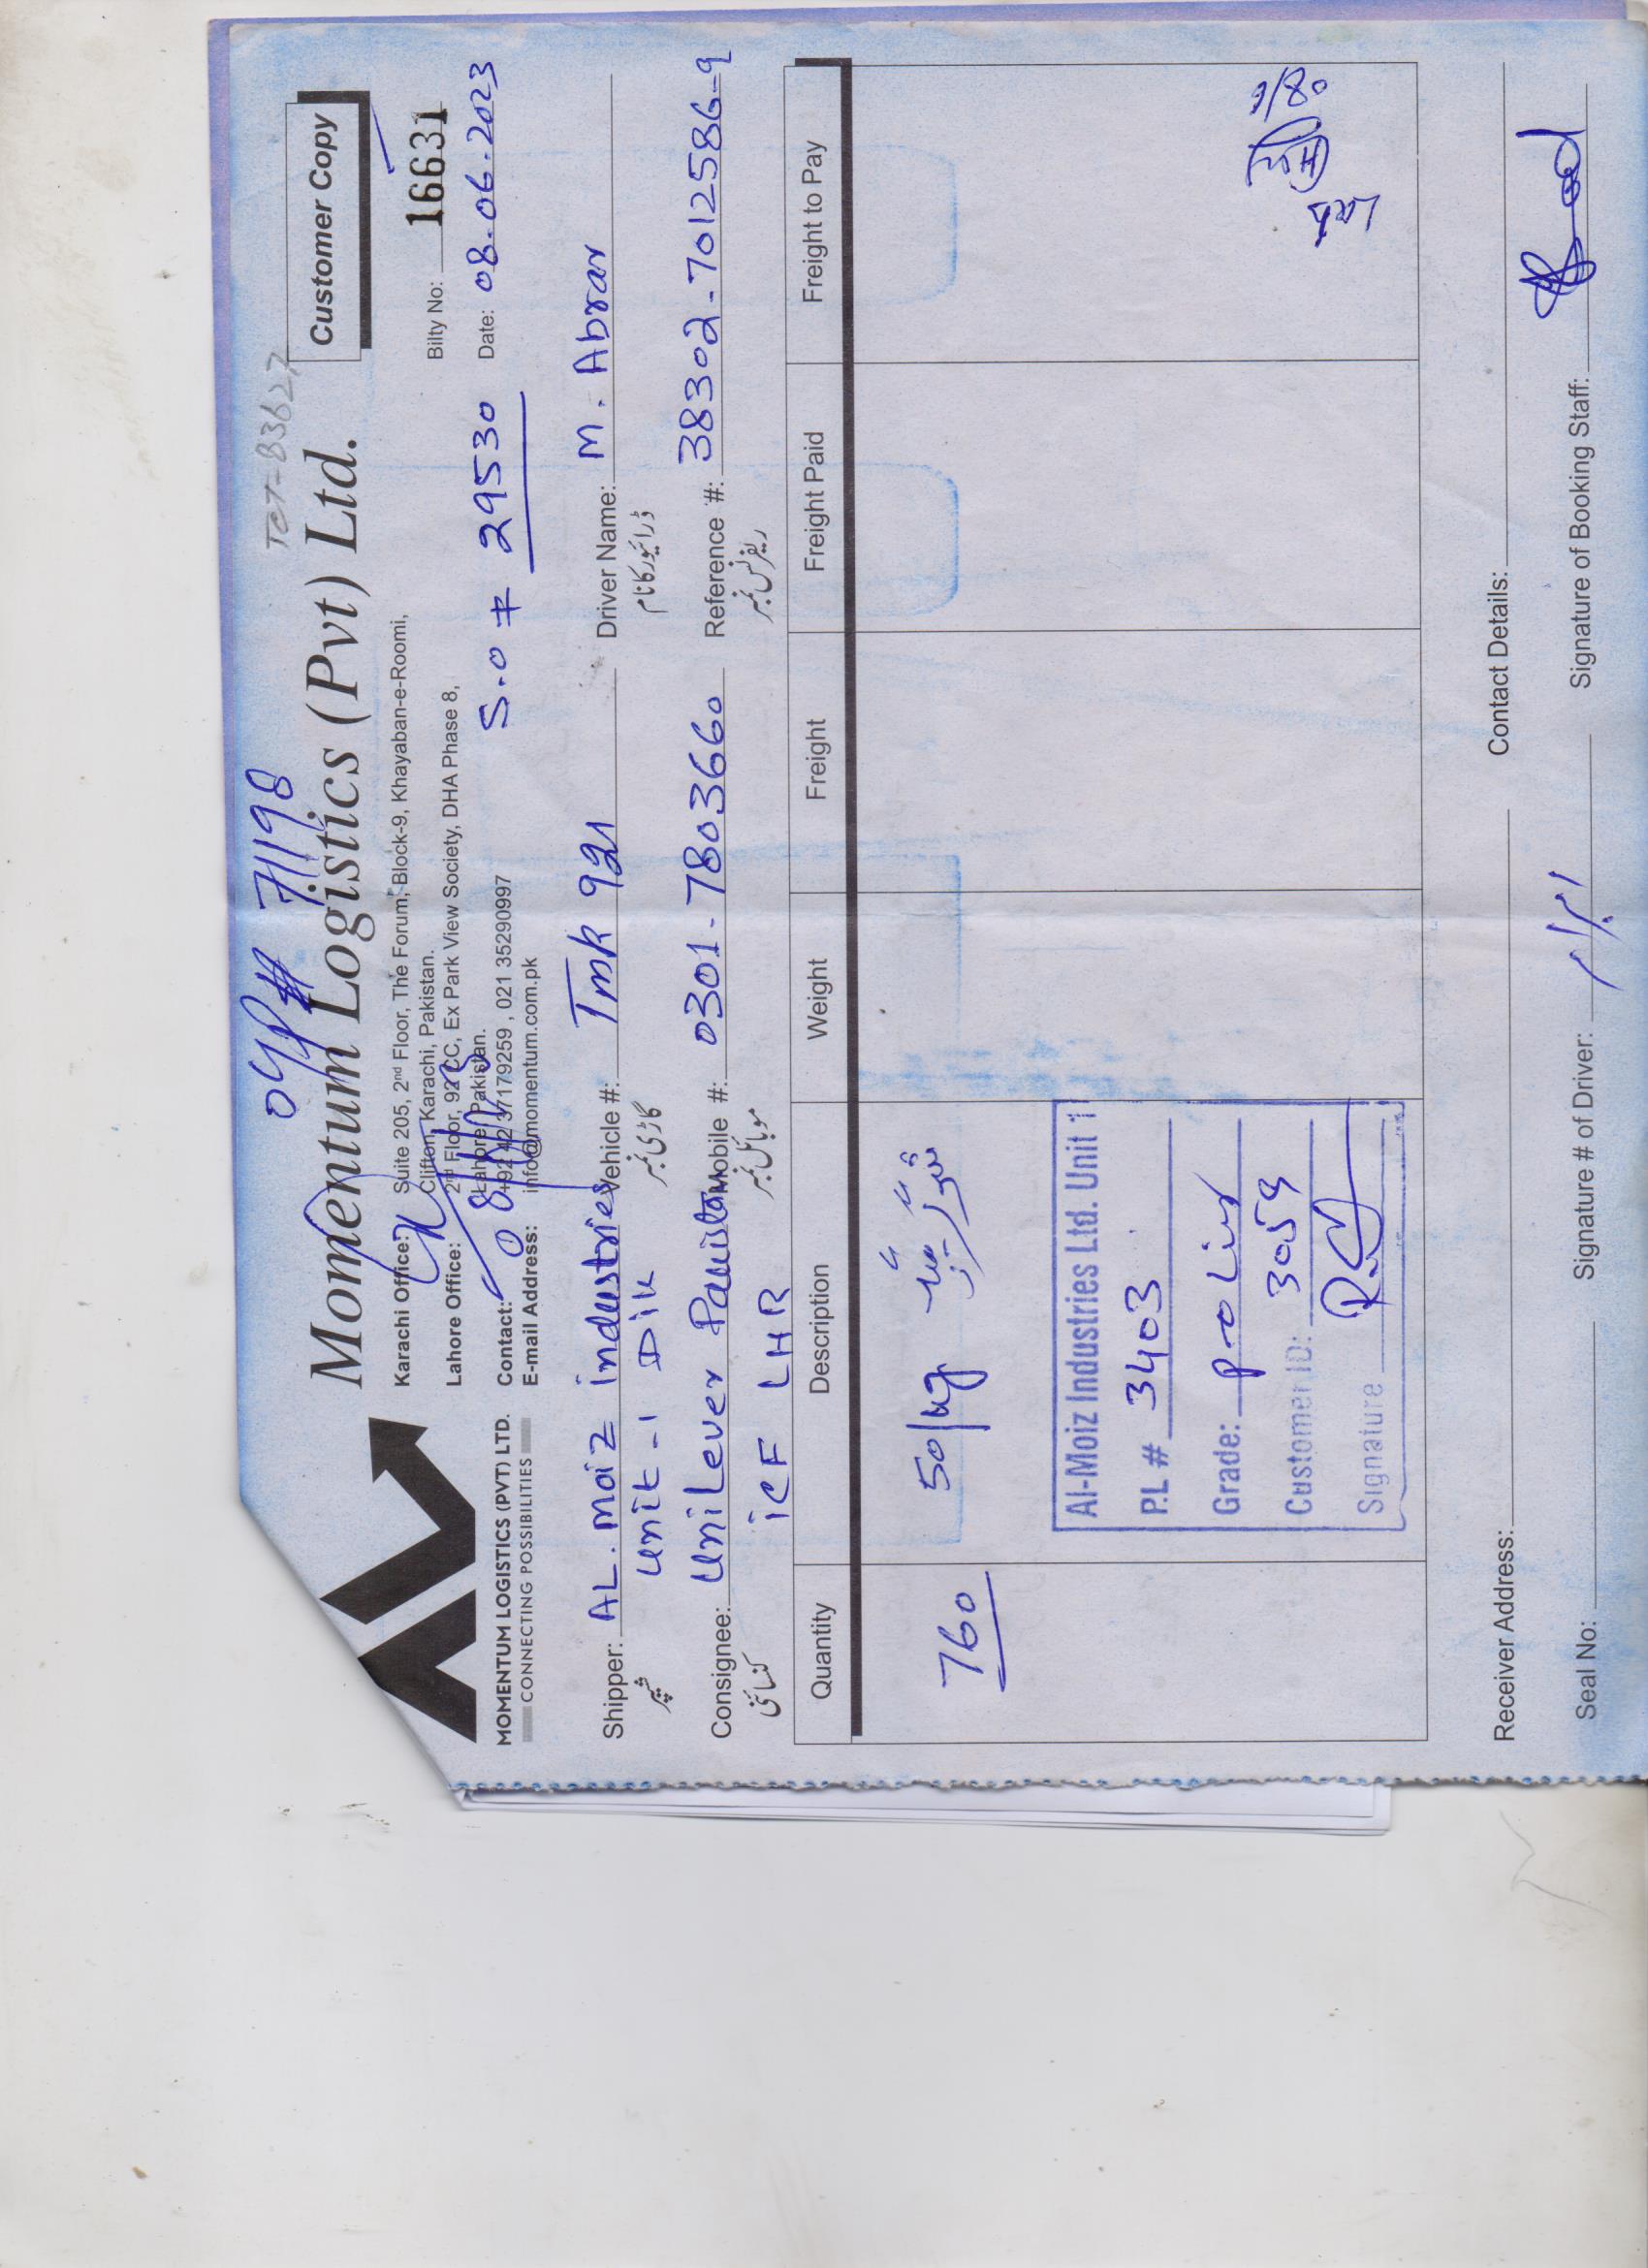 TCT-B3627
OGP# 71198
Momentum Logistics (Pvt) Ltd.
Customer Copy
MOMENTUM LOGISTICS (PVT) LTD.
CONNECTING POSSIBILITIES
Karachi Office: Suite 205, 2nd Floor, The Forum, Block-9, Khayaban-e-Roomi,
Clifton, Karachi, Pakistan.
Lahore Office: 2nd Floor, 92 CC, Ex Park View Society, DHA Phase 8,
Lahore, Pakistan.
Contact: +92 42 37179259 , 021 35290997
E-mail Address: info@momentum.com.pk
Bilty No: 16631
S.O # 29530 Date: 08.06.2023
Shipper: AL.moiz industries Vehicle #: Tmk 921 Driver Name: M. Abrar
شپر گاڑی نمبر ڈرائیور کا نام
unit-1 Dik
Consignee: UniLever Pakistan Mobile #: 0301-7803660 Reference #: 38302-7012586-9
کنسائنی موبائل نمبر ریفرنس نمبر
iCF LHR
Quantity Description Weight Freight Freight Paid Freight to Pay
760 50/kg
Al-Moiz Industries Ltd. Unit 1
P.L # 3403
Grade:
Customer ID: 3059
Signature
Receiver Address: Contact Details:
Seal No: Signature # of Driver: Signature of Booking Staff: